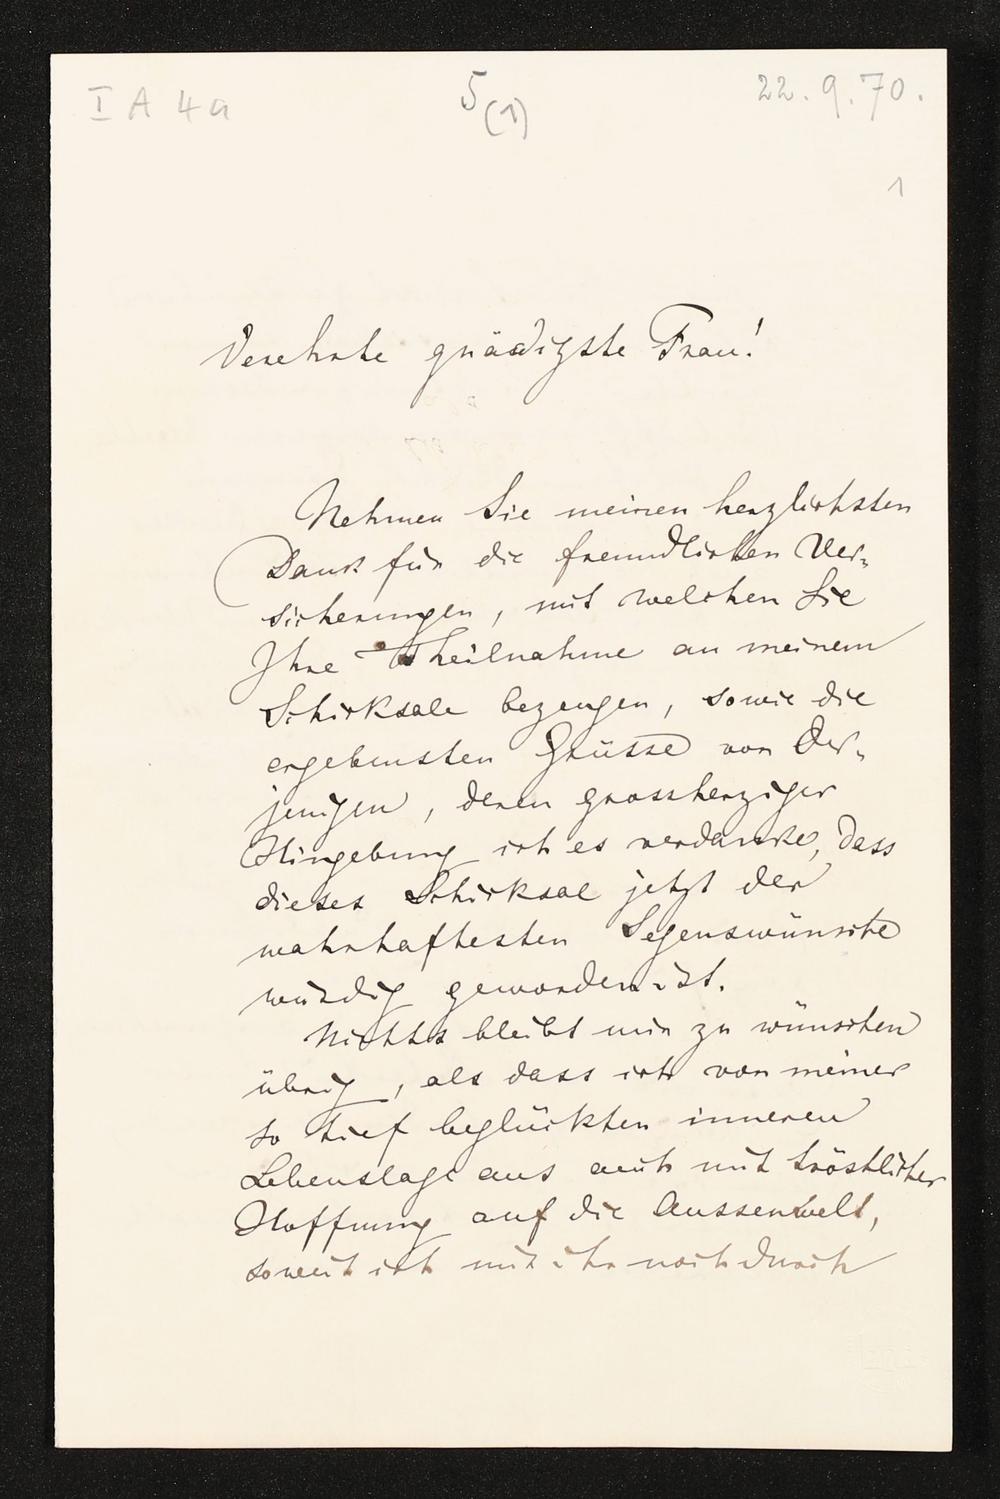 I A 4a 5 (1) 22. 9. 70.
1
Verehrte gnädigste Frau!
Nehmen Sie meinen herzlichsten
Dank für die freundlichen Ver-
sicherungen, mit welchen Sie
Ihre Theilnahme an meinem
Schicksale bezeugen, sowie die
ergebensten Grüsse von Der-
jenigen, deren grossherziger
Hingebung ich es verdanke, dass
dieses Schicksal jetzt der
wahrhaftesten Segenswünsche
würdig geworden ist.
Nichts bleibt mir zu wünschen
übrig, als dass ich von meiner
so tief beglückten inneren
Lebenslage aus auch mit tröstlicher
Hoffnung auf die Aussenwelt,
soweit ich mit ihr noch durch